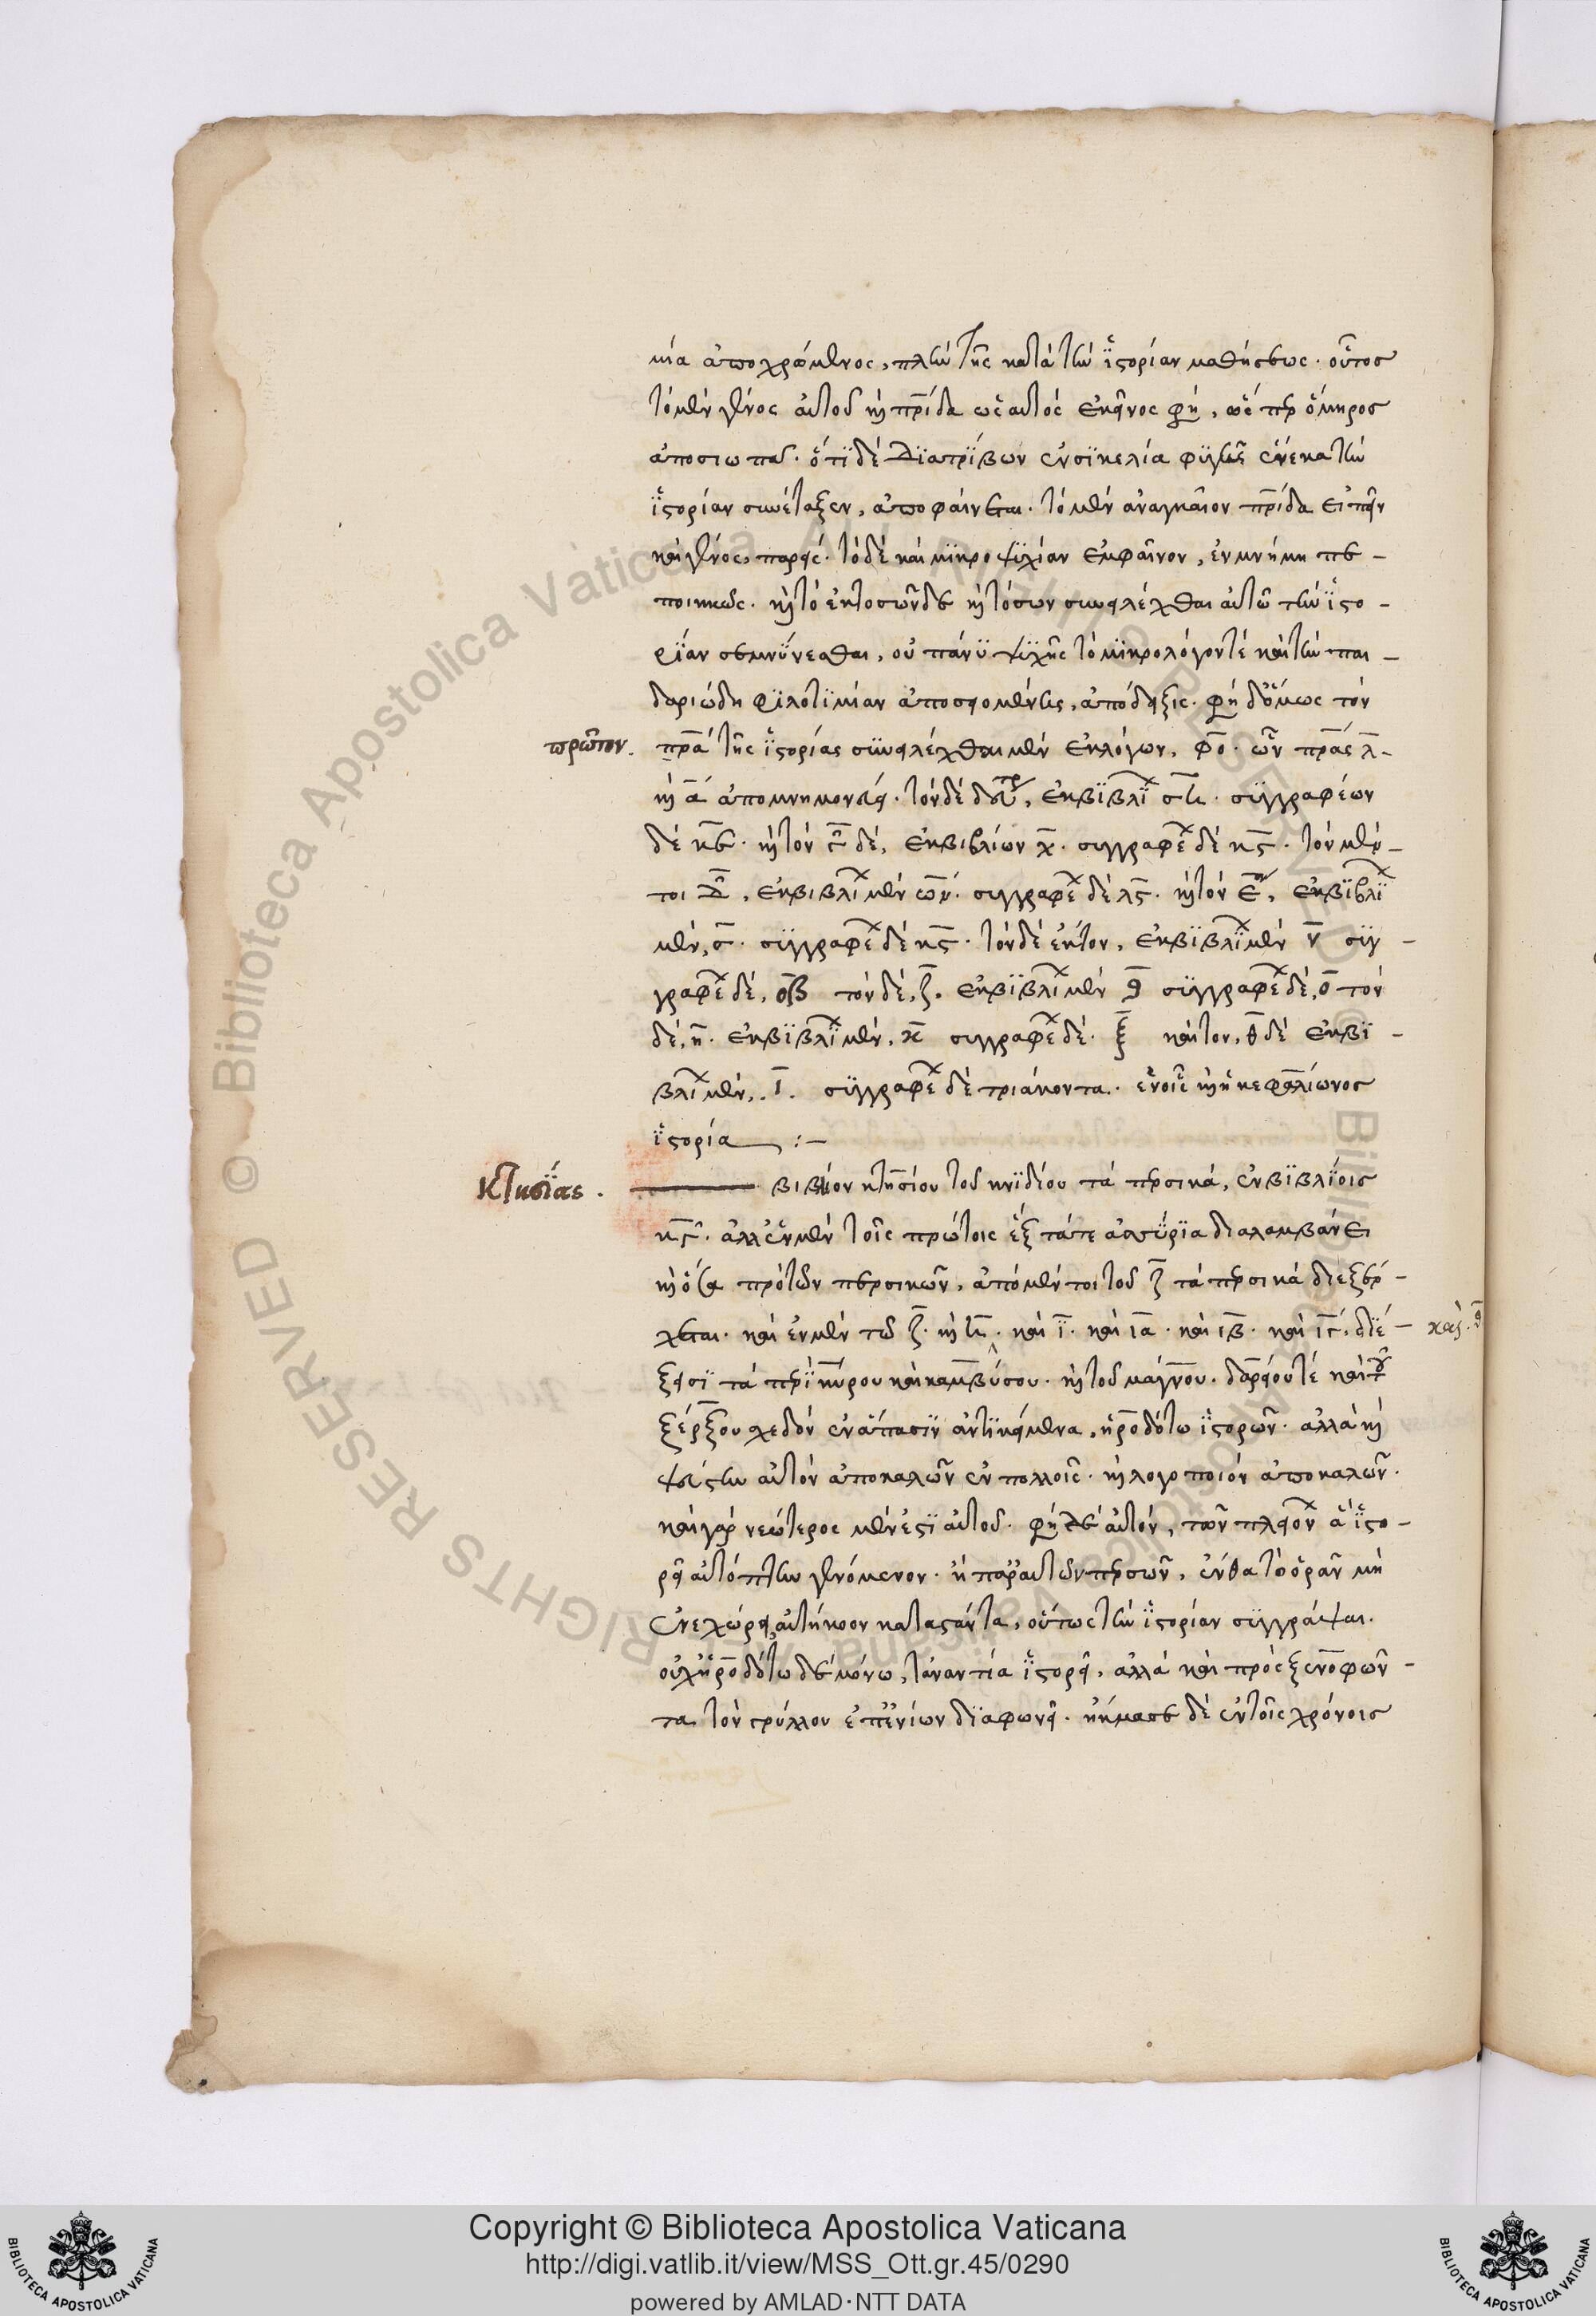 μία ἀποχρώμενος, πλὴν τῆς κατὰ τὴν ἱστορίαν μαθήσεως. οὗτος
τὸ μὲν γένος αὐτοῦ καὶ πρίδα ὡς αὐτὸς ἐκεῖνος φη, ὥσπερ ὅμηρος
ἀποσιωπᾶ. ὅτι δὲ διατρίβων ἐν σικελία φυγῆς ἕνεκα τὴν
ἱστορίαν συνέταξεν, ἀποφαίνεται. τὸ μὲν ἀναγκαῖον πρίδα εἰπεῖν
καὶ γένος, παρεὶς. τὸ δὲ καὶ μικροψυχίαν ἐμφαῖνον, ἐν μνήμη πε-
ποιηκὼς. καὶ τὸ ἐκ τοσῶνδε καὶ τόσων συνειλέχθαι αὐτῶ τὴν ἱστο-
ρίαν σεμνύνεσθαι, οὐ πάνυ ψυχῆς τὸ μικρολόγον τὲ καὶ τὴν παι-
δαριώδη φιλοτιμίαν ἀποσειομένης, ἀπόδειξις. φη δ' ὅμως τὸν
πρῶτον. πρᾶ τῆς ἱστορίας συνειλέχθαι μὲν ἐκ λόγων, φο. ὧν πρᾶς λ-
καὶ ᾱ ἀπομνημονεύει. τὸν δὲ δευτρ, ἐκ βιβλι ση. συγγραφέων
δὲ κε. καὶ τὸν γ δὲ, ἐκ βιβλίων χ. συγγραφε δὲ κς. τὸν μέν-
τοι Δ, ἐκ βιβλι μὲν ων. συγγραφε δὲ λς. καὶ τὸν ε, ἐκ βιβλι
μὲν, σ. συγγραφε δὲ κς. τὸν δὲ ἕκτον, ἐκ βιβλι μὲν ν συγ-
γραφε δὲ, οβ τὸν δὲ, ζ. ἐκ βιβλι μὲν συγγραφε δὲ, ο τὸν
δὲ, η. ἐκ βιβλι μὲν, κ συγγραφε δὲ. ξ καὶ τὸν, θ δὲ ἐκ βι-
βλι μὲν, ι. συγγραφε δὲ τριάκοντα. ἐν οἷς καὶ ἡ κεφαλίωνος
ἱστορία :-
Κτησίας. βιβλίον κτησίου τοῦ κνιδίου τὰ περσικὰ, ἐν βιβλίοις
κγ. ἀλλ' ἐν μὲν τοῖς πρώτοις ἓξ τά τε ἀσύρια διαλαμβάνει
καὶ ὅσα πρὸ τῶν περσικῶν, ἀπὸ μέν τοι τοῦ ζ τὰ περσικὰ διεξέρ-
χεται. καὶ ἐν μὲν τῶ ζ. καὶ η. καὶ ι. καὶ ια. καὶ ιβ. καὶ ιγ. διέ-
ξεισι τὰ περὶ κύρου καὶ καμβύσου. καὶ τοῦ μάγου. δαρείου τὲ καὶ τοῦ
ξέρξου σχεδὸν ἐν ἅπασιν ἀντικείμενα, ἡροδότω ἱστορῶν. ἀλλὰ καὶ
ψεύστην αὐτὸν ἀποκαλῶν ἐν πολλοῖς. καὶ λογοποιὸν ἀποκαλῶν.
καὶ γὰρ νεώτερος μὲν ἐστὶ αὐτοῦ. φη δὲ αὐτὸν, τῶν πλειον ἃ ἱστο-
ρεῖ αὐτόπτην γενόμενον. ἢ παρ' αὐτῶν περσῶν, ἔνθα τὸ ὁρᾶν μὴ
ἐνεχώρει, αὐτήκοον καταστάντα, οὕτως τὴν ἱστορίαν συγγράψαι.
οὐχ ἡροδότω δὲ μόνω, τἀναντία ἱστορεῖ, ἀλλὰ καὶ πρὸς ξενοφῶν-
τα τὸν γρύλλου ἐπ' ἐνίων διαφωνεῖ. ἤκμασε δὲ ἐν τοῖς χρόνοις
Copyright © Biblioteca Apostolica Vaticana
http://digi.vatlib.it/view/MSS_Ott.gr.45/0290
powered by AMLAD·NTT DATA